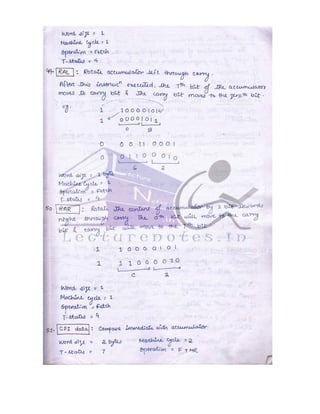 Word size = 1
Machine cycle = 1
Operation = Fetch
T-status = 4
49. RAL : Rotate accumulator left through carry.
After this instrucn executed, the 7th bit of the accumulators
moves to carry bit & the carry bit moves to the zeroth bit.
eg.
1 10000101
1 00001011
0 B
0 0011 0001
0 0110 0010
6 2
Word size = 1 byte
Machine cycle = 1
Operation = Fetch
T-status = 4
50. RAR : Rotate the content of accumulator by 1 bit towards
right through carry. The 0th bit will move to the carry
bit & carry bit will move to the 7th bit.
LectureNotes.in
1 1000 0101
1 1100 0010
C 2
Word size = 1
Machine cycle = 1
Operation = Fetch
T-status = 4
51. CPI data : Compare immediate with accumulator
Word size = 2 bytes Machine cycle = 2
T-status = 7 Operation = F + MR